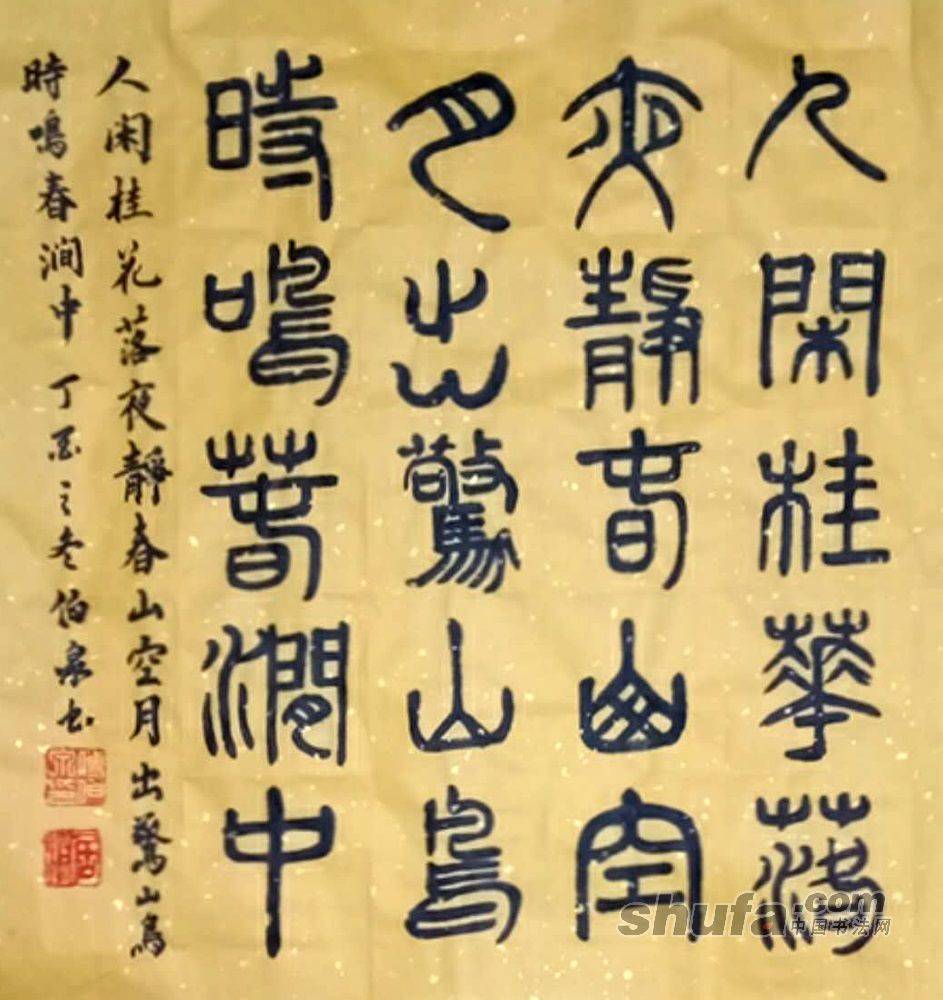 人閑桂華落
夜靜春山空
月出驚山鳥
時鳴春澗中
人闲桂花落夜靜春山空月出驚山鳥
時鳴春澗中 丁酉之冬伯泉书
shufa.com
中国书法网